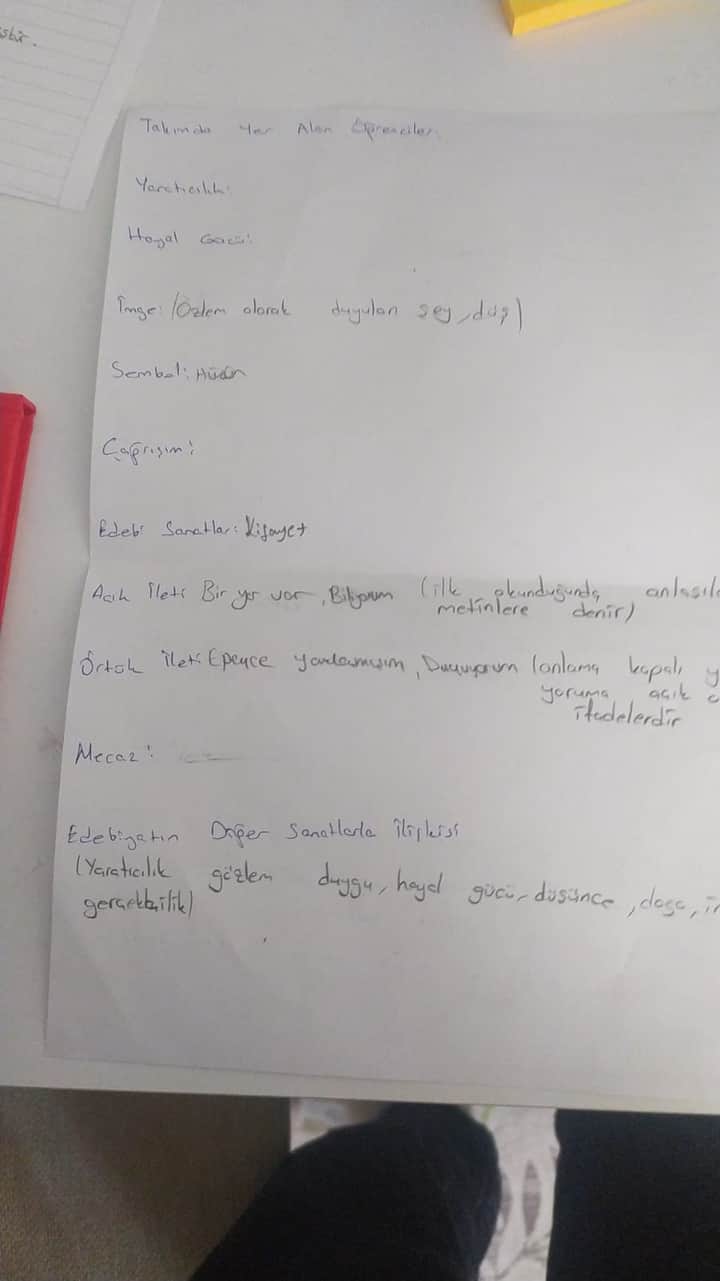 Takımda Yer Alan Öğrenciler:
Yaratıcılık:
Hayal Gücü:
İmge: (Özlem olarak duyulan şey, düş)
Sembol: Hüzün
Çağrışım:
Edebi Sanatlar: Kifayet
Açık İleti Bir yer var, Biliyorum (ilk okunduğunda anlaşıla
metinlere denir)
Örtük İleti Epeyce yaklaşmışım, Duyuyorum (anlama kapalı y
yoruma açık
ifadelerdir
Mecaz:
Edebiyatın Diğer Sanatlarla İlişkisi
(Yaratıcılık gözlem duygu, hayal gücü, düşünce, doğa, in
gerçekçilik)